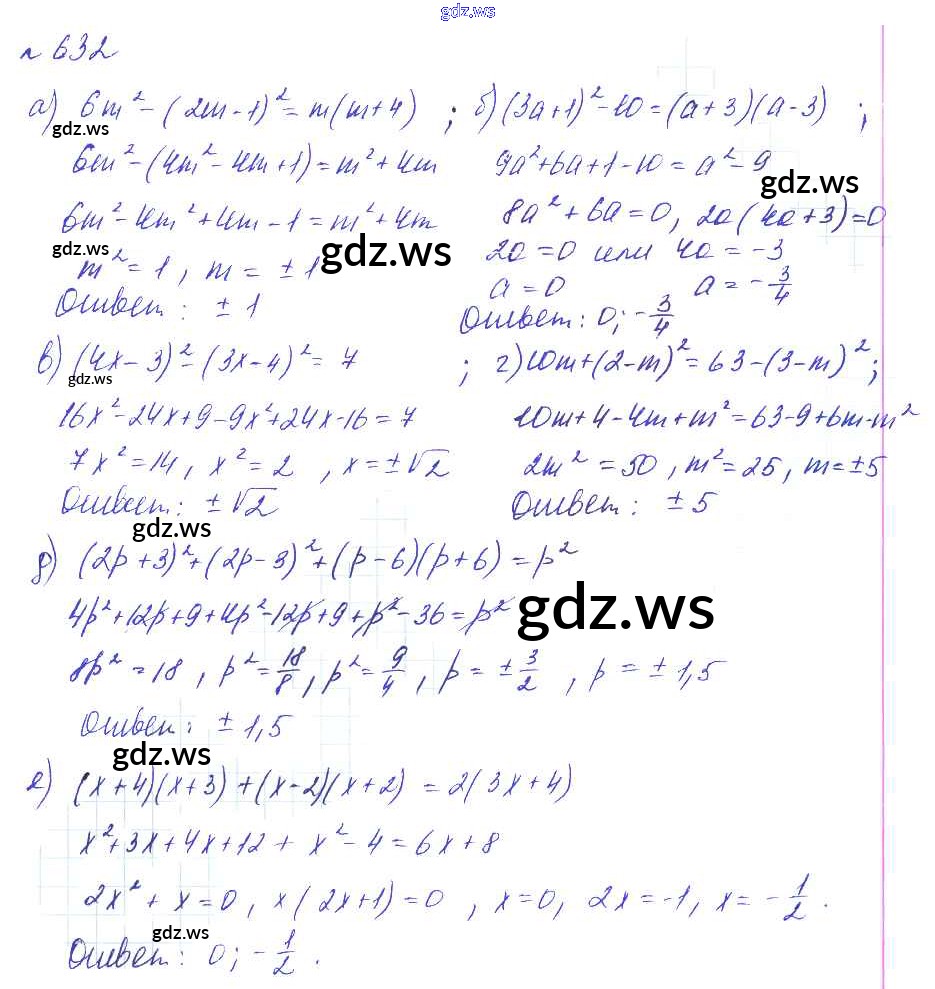 gdz.ws
№ 632
а) 6m² - (2m - 1)² = m(m + 4) ; б) (3a + 1)² - 10 = (a + 3)(a - 3) ;
gdz.ws
6m² - (4m² - 4m + 1) = m² + 4m 9a² + 6a + 1 - 10 = a² - 9
gdz.ws
6m² - 4m² + 4m - 1 = m² + 4m 8a² + 6a = 0, 2a(4a + 3) = 0
gdz.ws
m² = 1, m = ± 1 2a = 0 или 4a = -3
gdz.ws
a = 0 a = -3/4
Ответ: ± 1 Ответ: 0; -3/4
в) (4x - 3)² - (3x - 4)² = 7 ; г) 10m + (2 - m)² = 63 - (3 - m)² ;
gdz.ws
16x² - 24x + 9 - 9x² + 24x - 16 = 7 10m + 4 - 4m + m² = 63 - 9 + 6m - m²
7x² = 14, x² = 2, x = ±√2 2m² = 50, m² = 25, m = ±5
Ответ: ±√2 Ответ: ± 5
gdz.ws
д) (2p + 3)² + (2p - 3)² + (p - 6)(p + 6) = p²
4p² + 12p + 9 + 4p² - 12p + 9 + p² - 36 = p²
gdz.ws
8p² = 18, p² = 18/8, p² = 9/4, p = ± 3/2, p = ± 1,5
Ответ: ± 1,5
gdz.ws
е) (x + 4)(x + 3) + (x - 2)(x + 2) = 2(3x + 4)
x² + 3x + 4x + 12 + x² - 4 = 6x + 8
2x² + x = 0, x(2x + 1) = 0, x = 0, 2x = -1, x = -1/2.
gdz.ws
Ответ: 0; -1/2.
gdz.ws